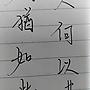 猶如此
人何以